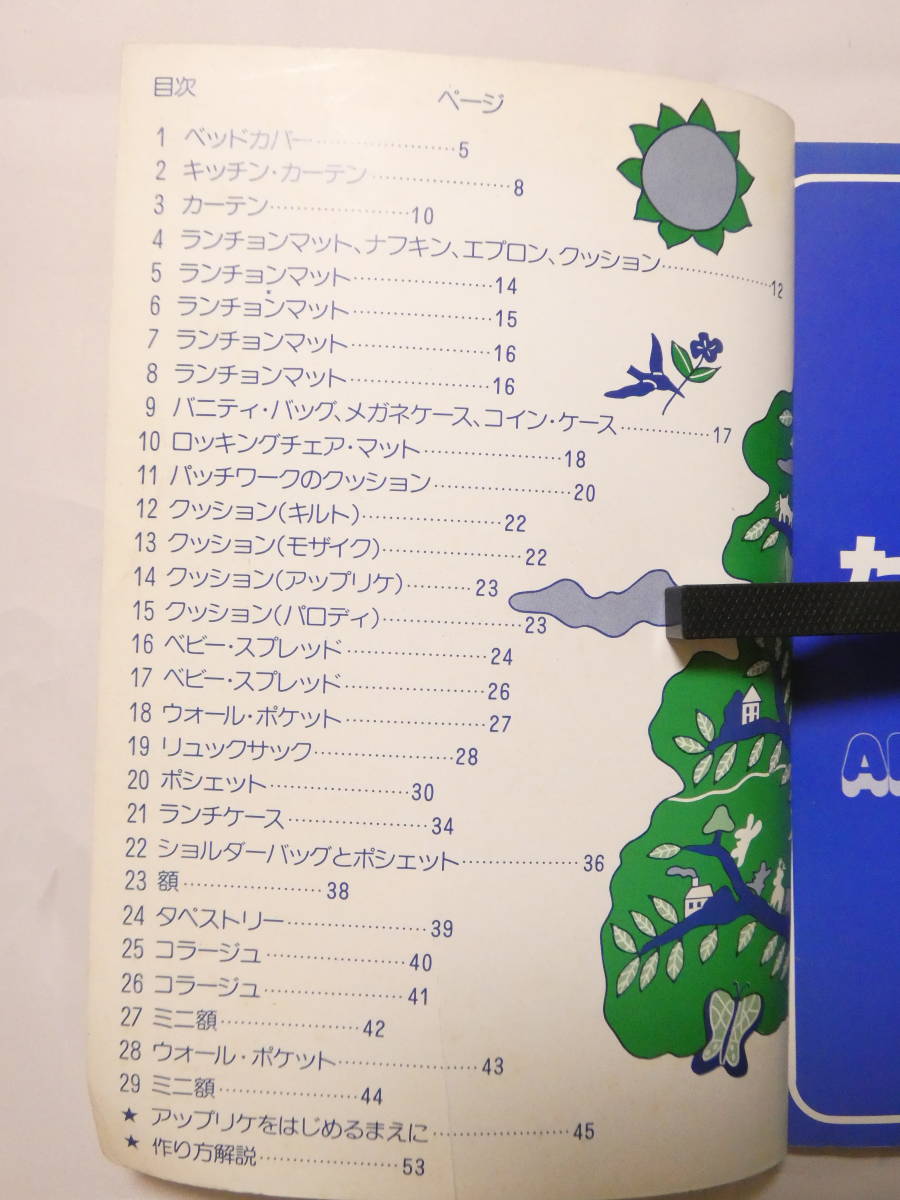 目次
ページ
1 ベッドカバー…………………5
2 キッチン・カーテン…………………8
3 カーテン…………………10
4 ランチョンマット、ナフキン、エプロン、クッション………………12
5 ランチョンマット…………………14
6 ランチョンマット…………………15
7 ランチョンマット…………………16
8 ランチョンマット…………………16
9 バニティ・バッグ、メガネケース、コイン・ケース……………17
10 ロッキングチェア・マット…………………18
11 パッチワークのクッション…………………20
12 クッション(キルト)…………………22
13 クッション(モザイク)…………………22
14 クッション(アップリケ)…………23
15 クッション(パロディ)…………………23
16 ベビー・スプレッド…………………24
17 ベビー・スプレッド…………………26
18 ウォール・ポケット…………………27
19 リュックサック…………………28
20 ポシェット…………………30
21 ランチケース…………………34
22 ショルダーバッグとポシェット………………36
23 額…………………38
24 タペストリー…………………39
25 コラージュ…………………40
26 コラージュ…………………41
27 ミニ額…………………42
28 ウォール・ポケット…………………43
29 ミニ額…………………44
★ アップリケをはじめるまえに…………………45
★ 作り方解説…………………53